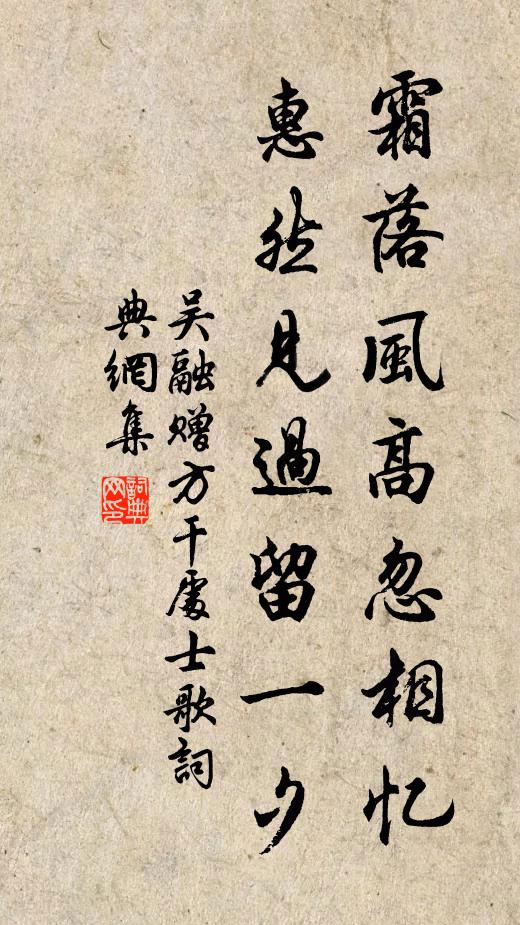 霜落風高忽相忆
惠然見過留一夕
吴融赠方干處士歌詞
典網集
詞典網印